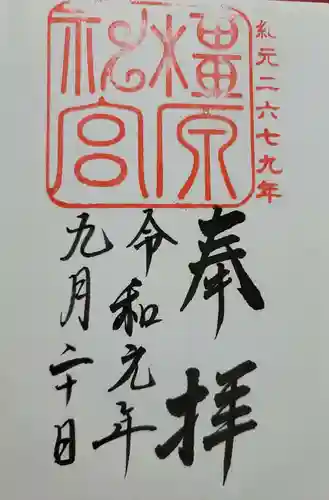 紀元二六七九年
橿原
神宮
奉拝
令和元年
九月二十日